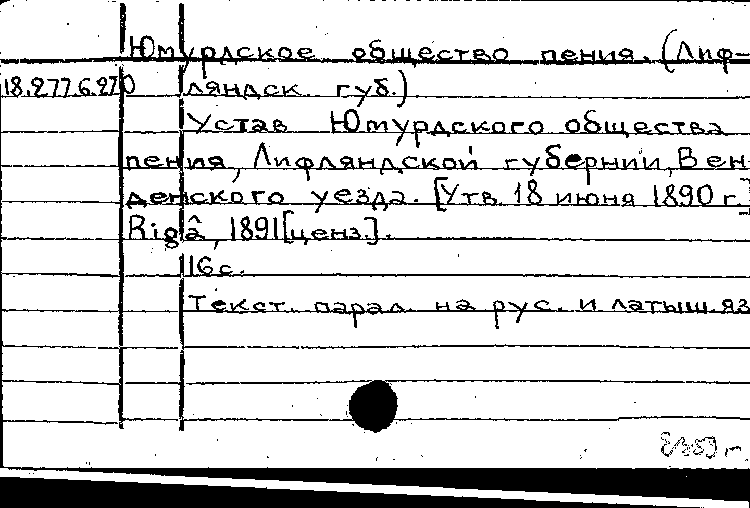 Юмурдское общество пения. (Лиф-
18.277.6.270 ляндск. губ.)
Устав Юмурдского общества
пения, Лифляндской губернии, Вен-
денского уезда. [Утв. 18 июня 1890 г.]
Rigâ, 1891 [ценз.].
16 с.
Текст. парал. на рус. и латыш. яз